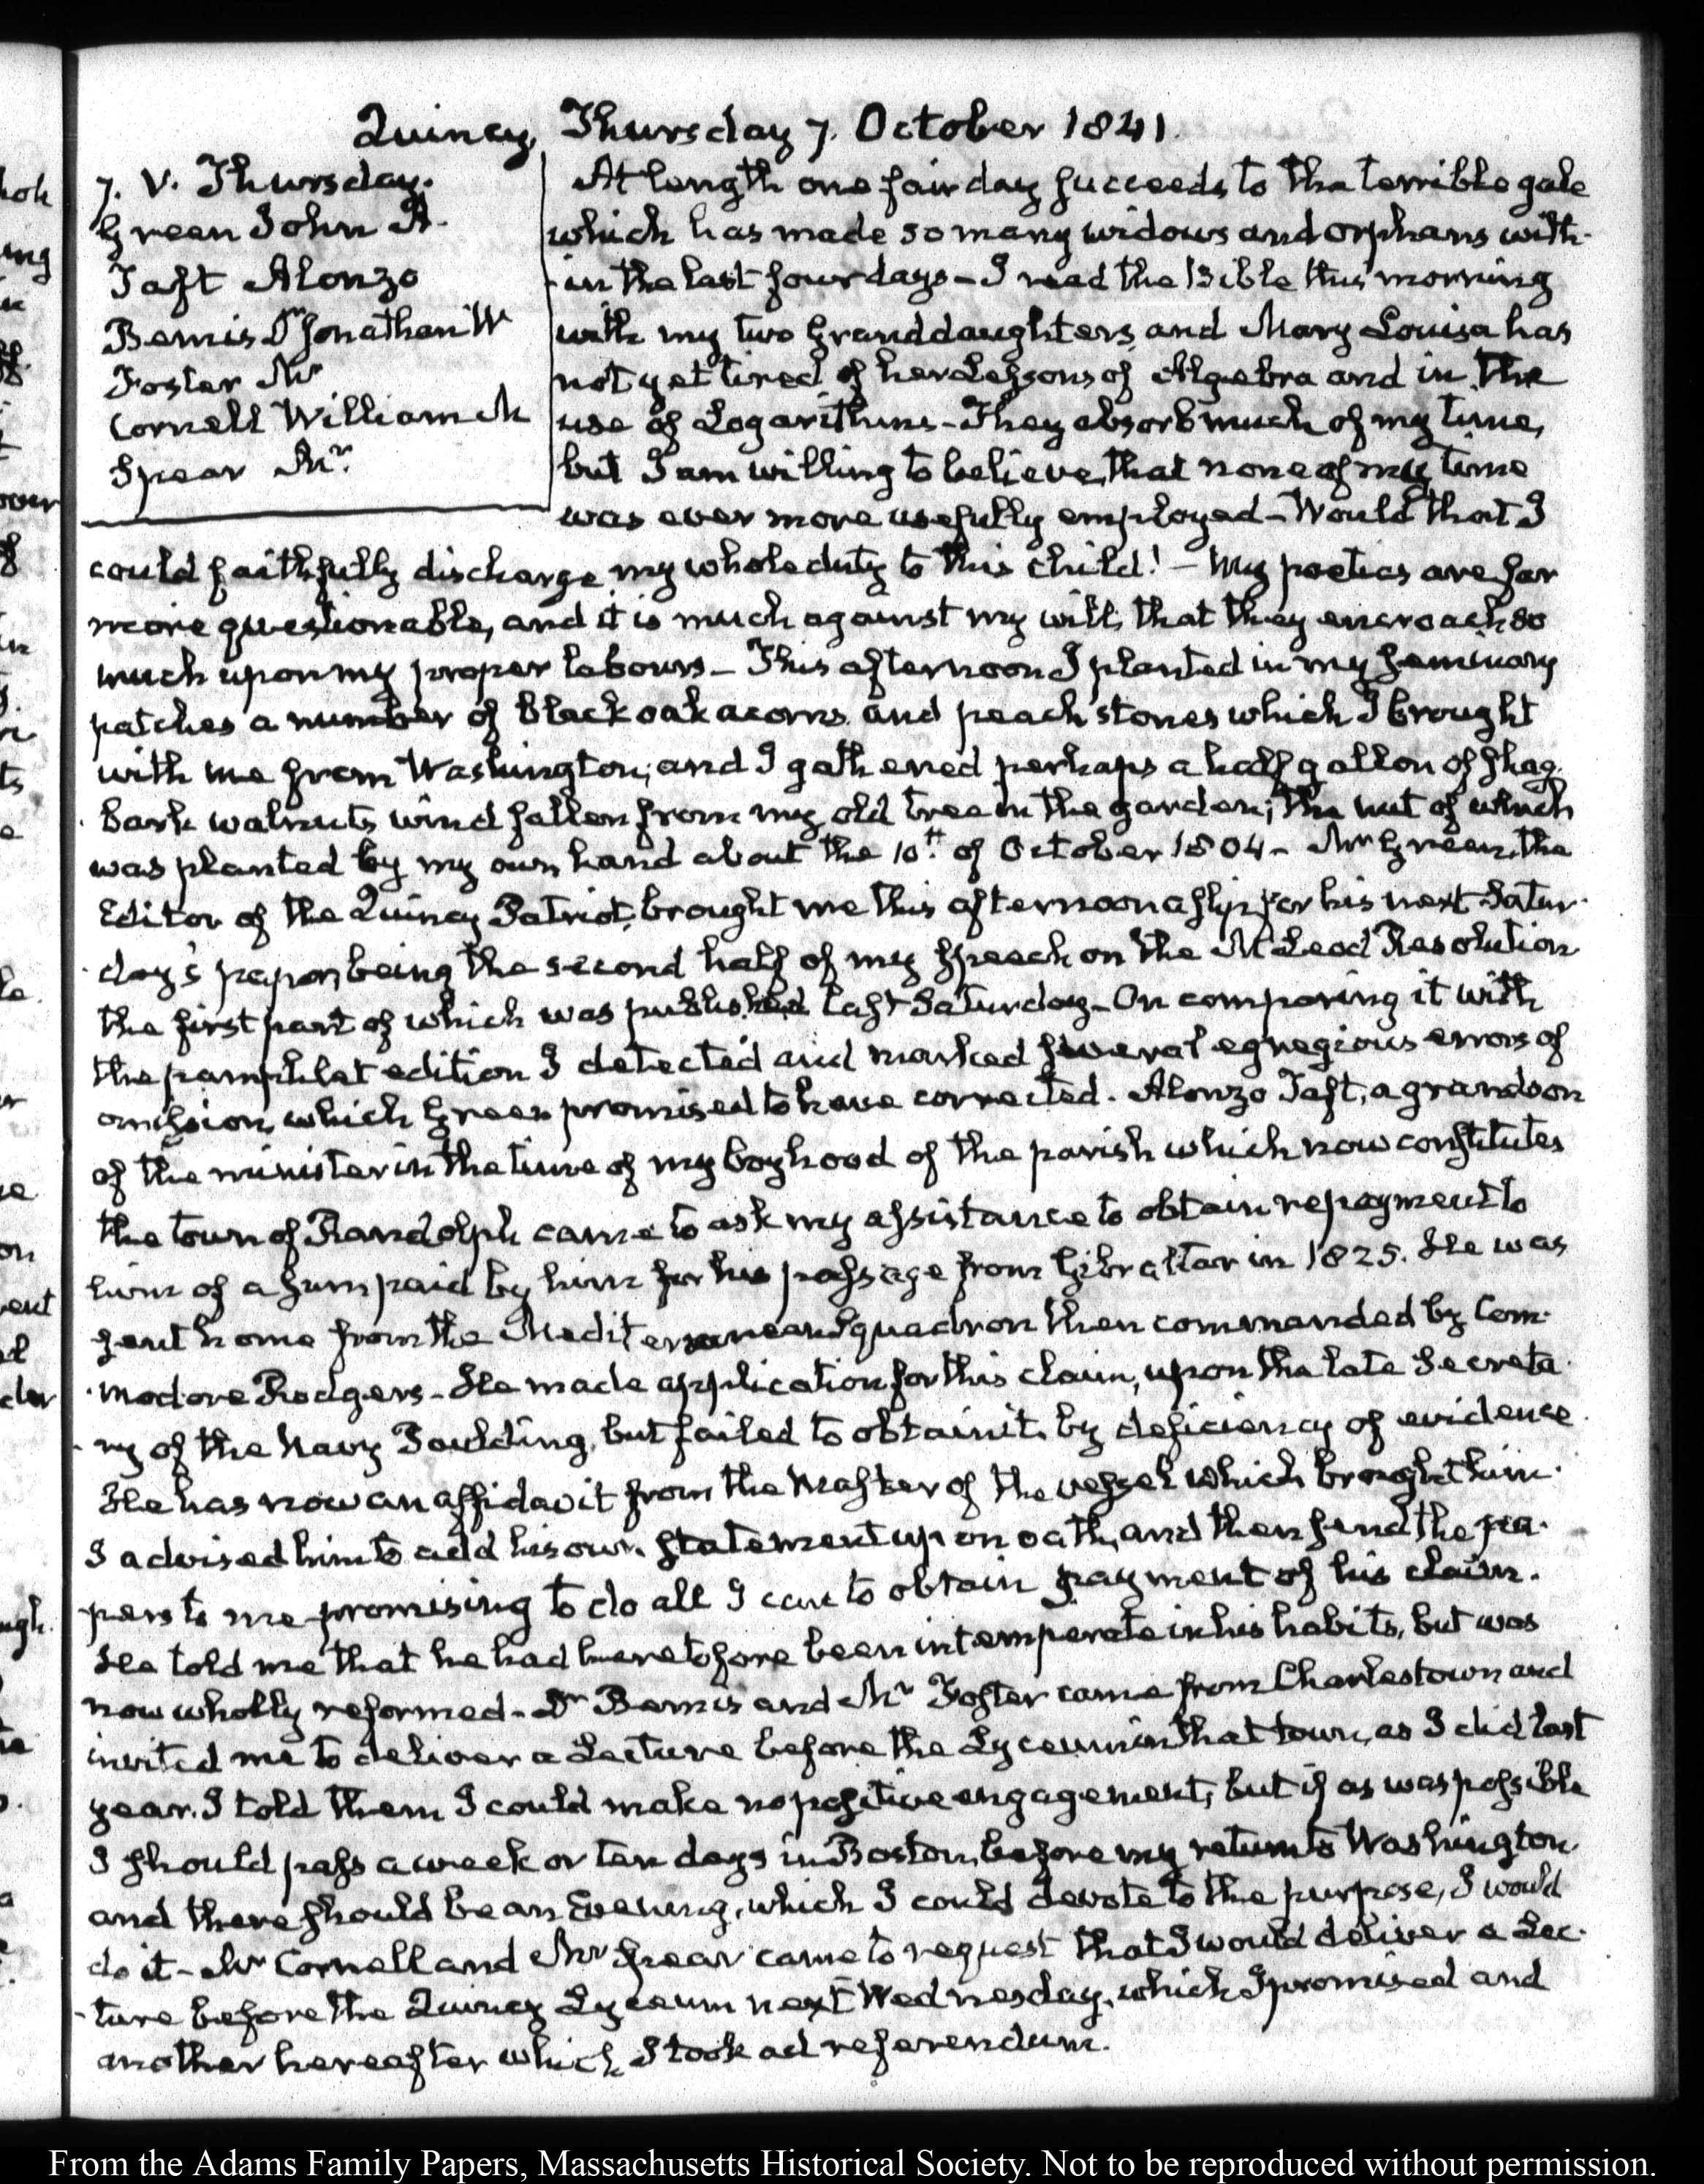 Quincy, Thursday 7. October 1841.
7. V. Thursday.
Green John A.
Taft Alonzo
Bemis Dr Jonathan W
Foster Mr
Cornell William M
Spear Mr.
At length one fair day succeeds to the terrible gale
which has made so many widows and orphans with-
-in the last four days - I read the Bible this morning
with my two Granddaughters, and Mary Louisa has
not yet tired of her Lessons of Algebra and in the
use of Logarithms - They absorb much of my time,
but I am willing to believe, that none of my time
was ever more usefully employed - Would that I
could faithfully discharge my whole duty to this child! - My poetics are far
more questionable, and it is much against my will, that they encroach so
much upon my proper labours - This afternoon I planted in my seminary
patches a number of black oak acorns and peach stones which I brought
with me from Washington; and I gathered perhaps a half gallon of shag-
bark walnuts wind fallen from my old tree in the garden; the nut of which
was planted by my own hand about the 10th of October 1804 - Mr Green, the
Editor of the Quincy Patriot, brought me this afternoon a slip for his next Satur-
-day's paper, being the second half of my speech on the McLeod Resolution
the first part of which was published last Saturday - On comparing it with
the pamphlet edition I detected and marked several egregious errors of
omission, which Green promised to have corrected. Alonzo Taft, a grandson
of the minister in the time of my boyhood of the parish which now constitutes
the town of Randolph came to ask my assistance to obtain repayment to
him of a sum paid by him for his passage from Gibraltar in 1825. He was
sent home from the Mediterranean Squadron then commanded by Com-
-modore Rodgers - He made application for this claim, upon the late Secreta-
-ry of the Navy Paulding, but failed to obtain it, by deficiency of evidence.
He has now an affidavit from the Master of the vessel which brought him.
I advised him to add his own statement upon oath, and then send the pa-
-pers to me promising to do all I can to obtain payment of his claim.
He told me that he had heretofore been intemperate in his habits, but was
now wholly reformed - Dr Bemis and Mr Foster came from Charlestown and
invited me to deliver a Lecture before the Lyceum in that town, as I did last
year. I told them I could make no positive engagement, but if as was possible
I should pass a week or ten days in Boston, before my return to Washington
and there should be an Evening, which I could devote to the purpose, I would
do it - Mr Cornell and Mr Spear came to request that I would deliver a Lec-
-ture before the Quincy Lyceum next Wednesday, which I promised and
another hereafter which I took ad referendum.
From the Adams Family Papers, Massachusetts Historical Society. Not to be reproduced without permission.